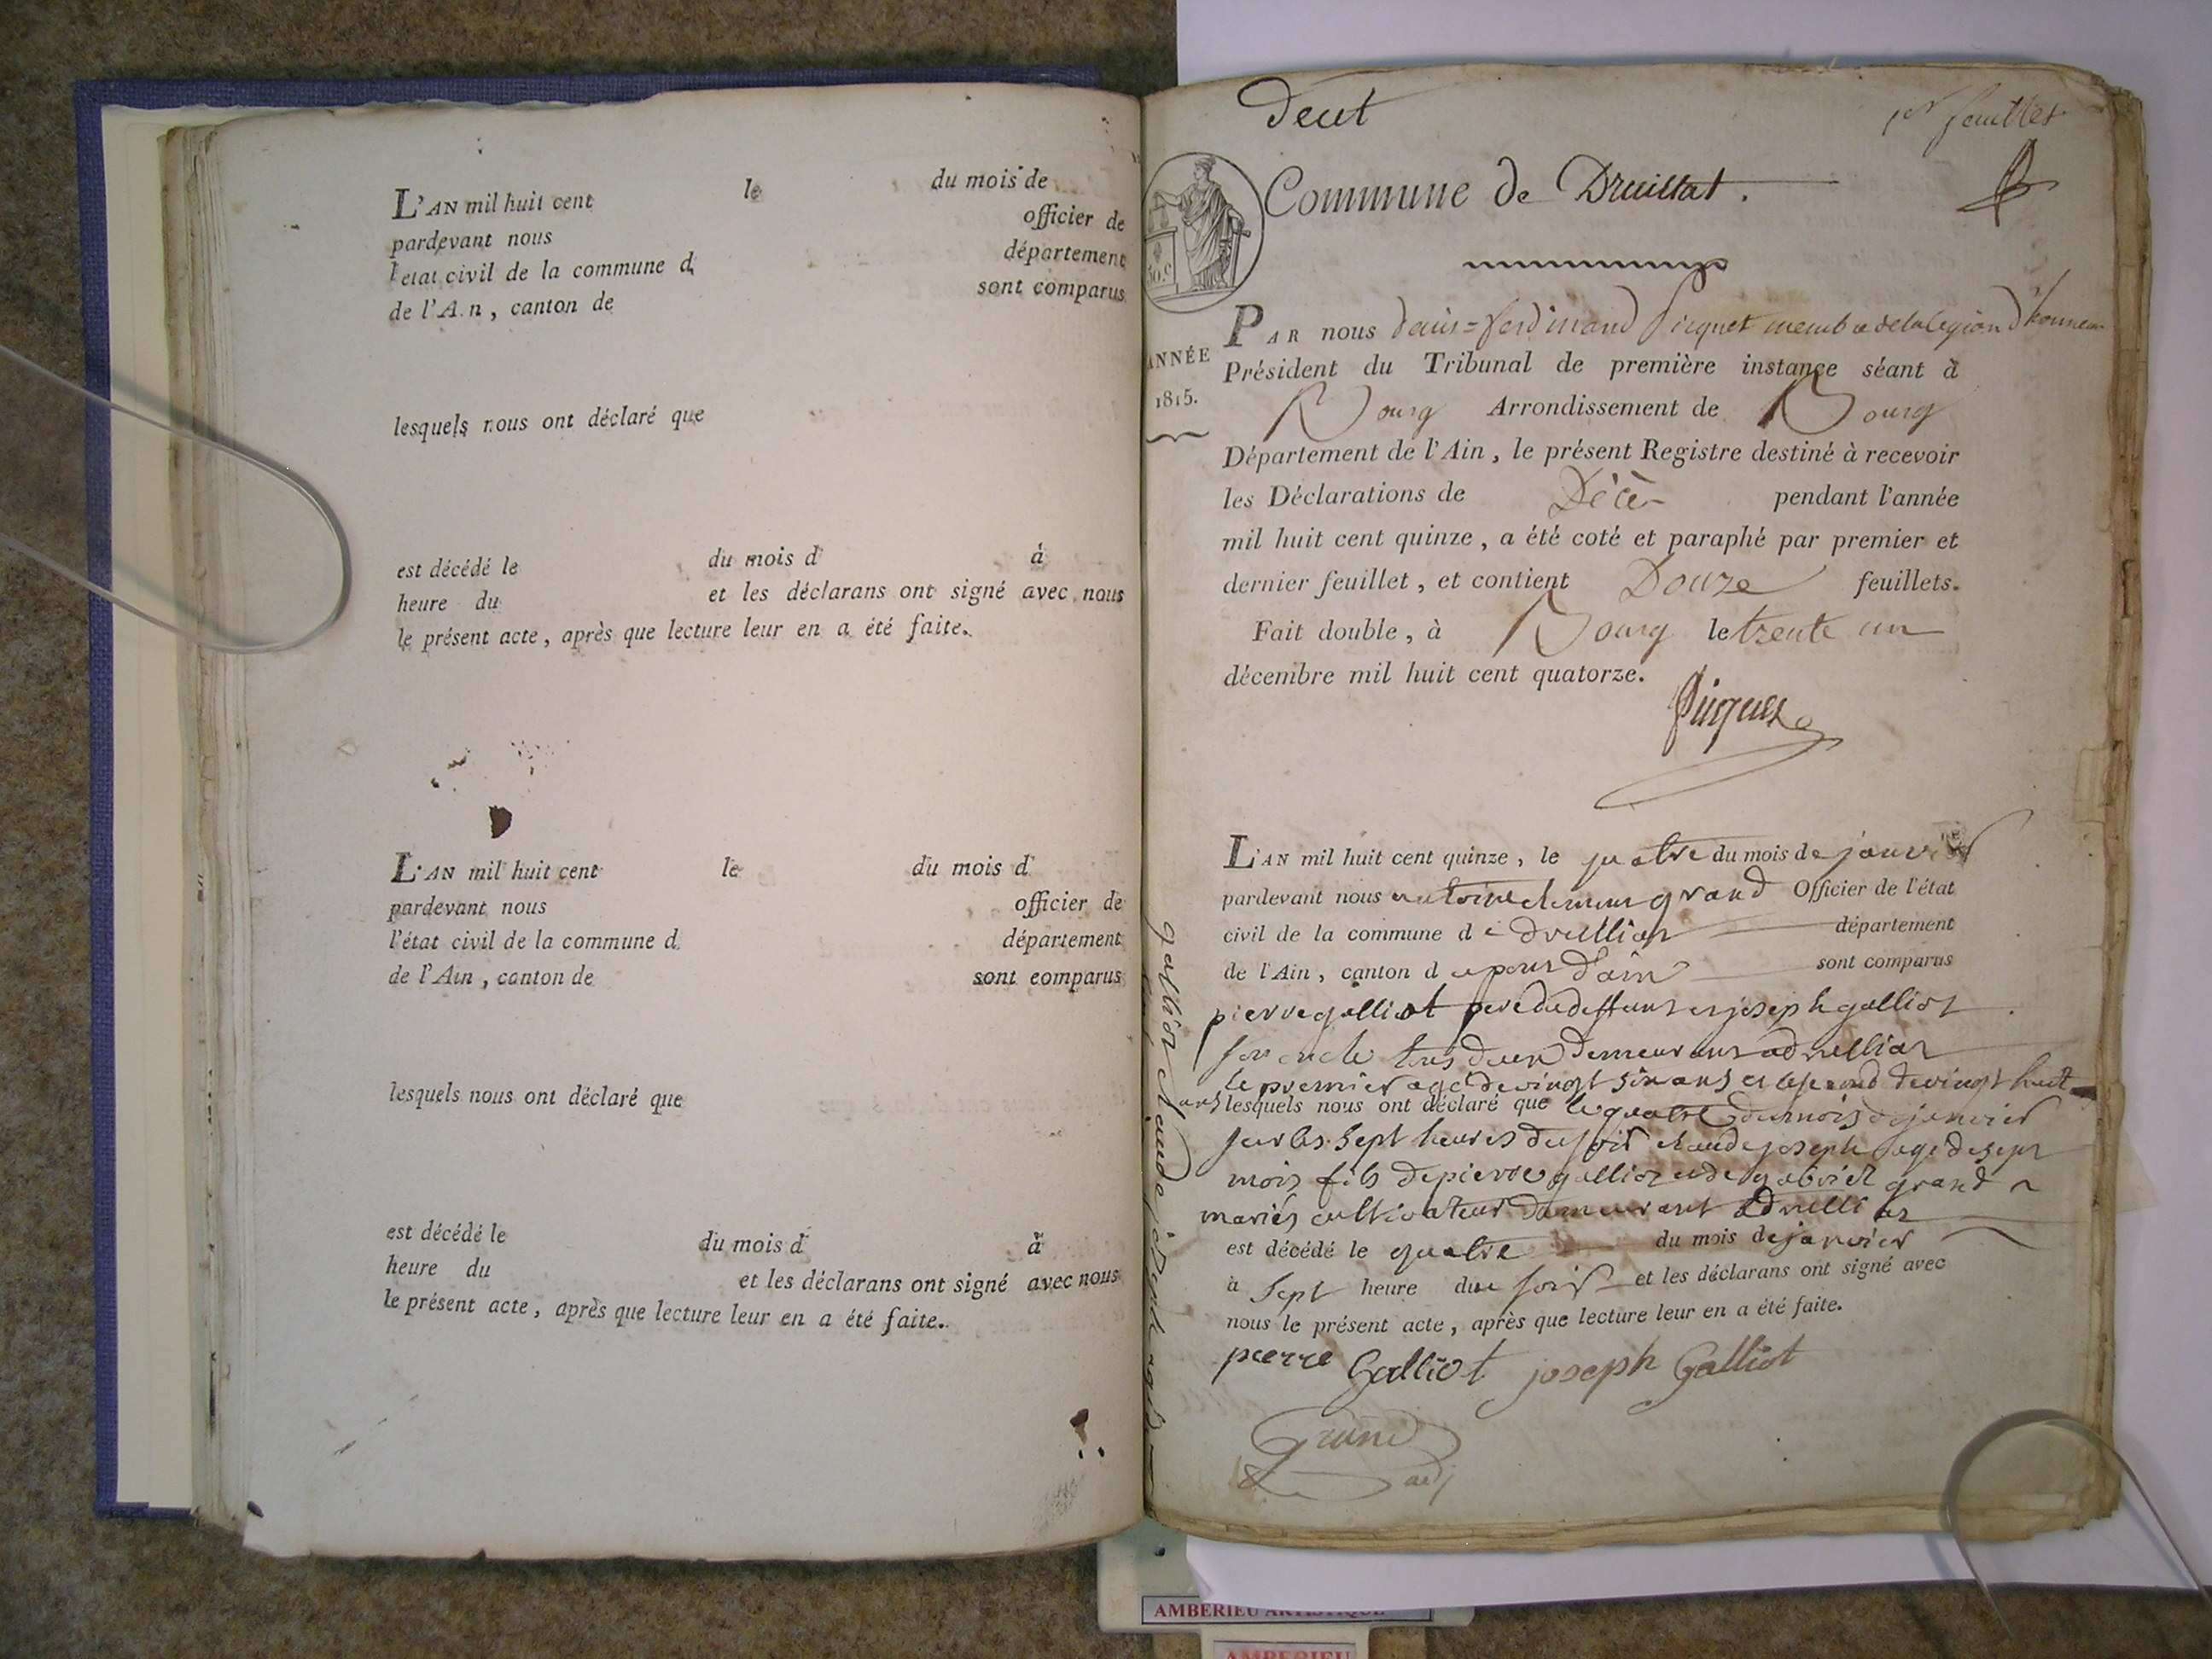 L'AN mil huit cent le du mois de
pardevant nous officier de
l'etat civil de la commune d département
de l'Ain, canton de sont comparus
lesquels nous ont déclaré que
est décédé le du mois d à
heure du et les déclarans ont signé avec nous
le présent acte, après que lecture leur en a été faite.
L'AN mil huit cent le du mois d
pardevant nous officier de
l'état civil de la commune d département
de l'Ain, canton de sont comparus
lesquels nous ont déclaré que
est décédé le du mois d à
heure du et les déclarans ont signé avec nous
le présent acte, après que lecture leur en a été faite.
1er feuillet
Commune de Druillat.
50.c
ANNÉE
1815.
PAR nous Denis=ferdinand Picquet membre de la legion d'honneur
Président du Tribunal de première instance séant à
Bourg Arrondissement de Bourg
Département de l'Ain, le présent Registre destiné à recevoir
les Déclarations de Décès pendant l'année
mil huit cent quinze, a été coté et paraphé par premier et
dernier feuillet, et contient Douze feuillets.
Fait double, à Bourg le trente un
décembre mil huit cent quatorze.
Picquet
L'AN mil huit cent quinze, le quatre du mois de janvier
pardevant nous antoine grand Officier de l'état
civil de la commune d e druilliat département
de l'Ain, canton d e pont d'ain sont comparus
pierre galliot pere du deffunt et joseph galliot
son oncle tous deux demeurant a druilliat
le premier agé de vingt six ans et le second de vingt huit
ans lesquels nous ont déclaré que le quatre du mois de janvier
sur les sept heures du soir claude joseph agé de sept
mois fils de pierre galliot et de gabriel grand
mariés cultivateur demeurant a druilliat
est décédé le quatre du mois de janvier
à sept heure du soir et les déclarans ont signé avec
nous le présent acte, après que lecture leur en a été faite.
pierre Galliot joseph Galliot
Grand
adj
galliot claude joseph
AMBERIEU ARTISTIQUE
AMBERIEU